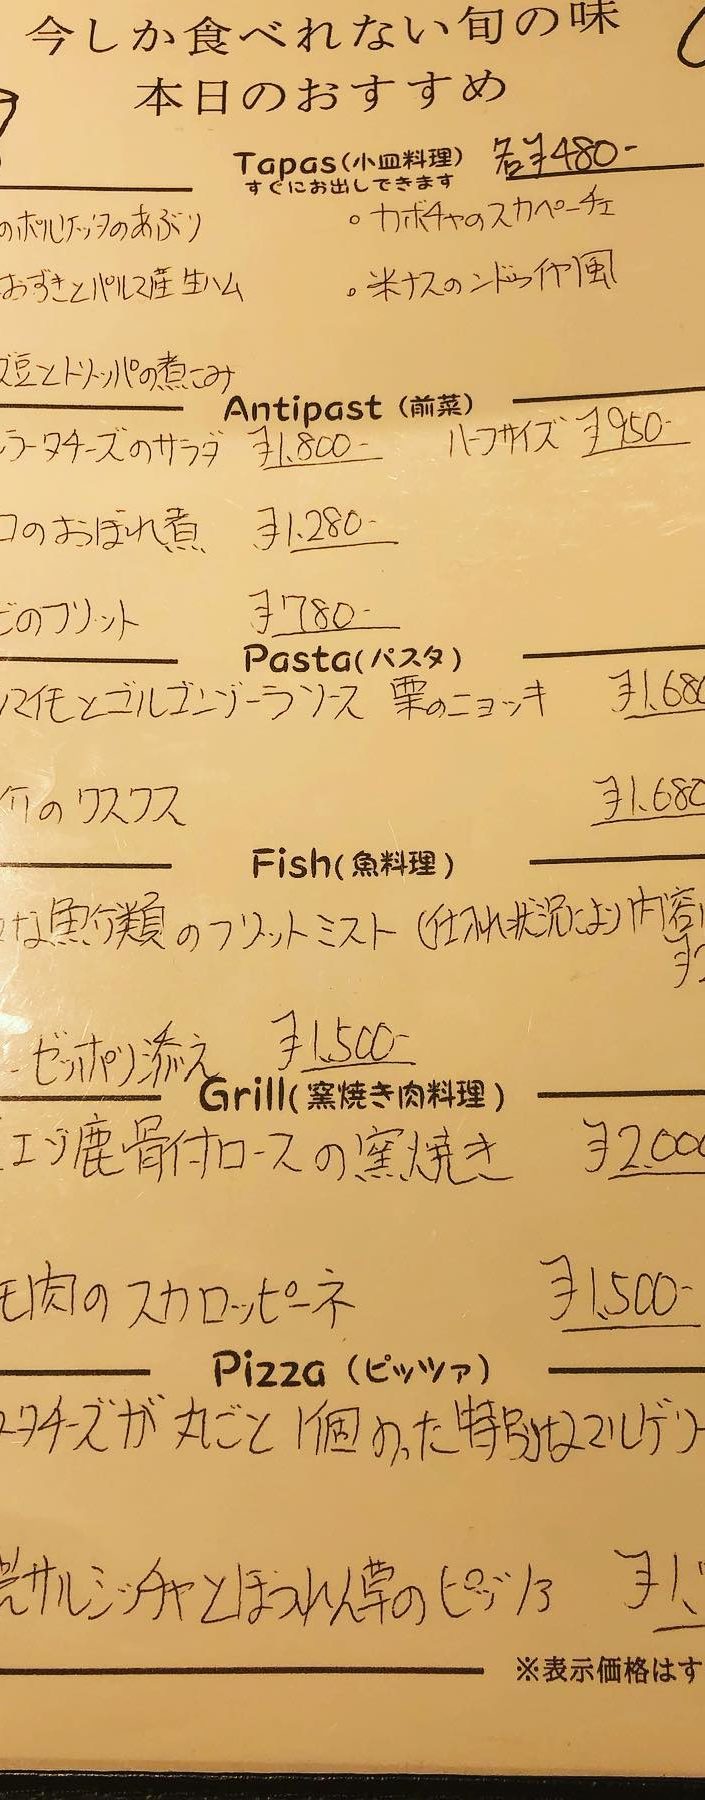 今しか食べれない旬の味
本日のおすすめ
Tapas(小皿料理) 各¥480-
すぐにお出しできます
のポルケッタのあぶり ・カボチャのスカペーチェ
おずきとパルマ産生ハム ・米ナスのンドゥイヤ風
豆とトリッパの煮こみ
Antipast (前菜)
ラータチーズのサラダ ¥1.800- ハーフサイズ ¥950-
コのおぼれ煮 ¥1.280-
ビのフリット ¥780-
Pasta(パスタ)
マイモとゴルゴンゾーラソース 栗のニョッキ ¥1.680
介のクスクス ¥1.680
Fish(魚料理)
な魚介類のフリットミスト (仕入れ状況により内容
¥2
ゼッポリ添え ¥1.500-
Grill(窯焼き肉料理)
エゾ鹿骨付ロースの窯焼き ¥2.000
モ肉のスカロッピーネ ¥1.500-
Pizza (ピッツァ)
ータチーズが丸ごと1個のった特別なマルゲリ
サルシッチャとほうれん草のピッツァ ¥1.
※表示価格はす